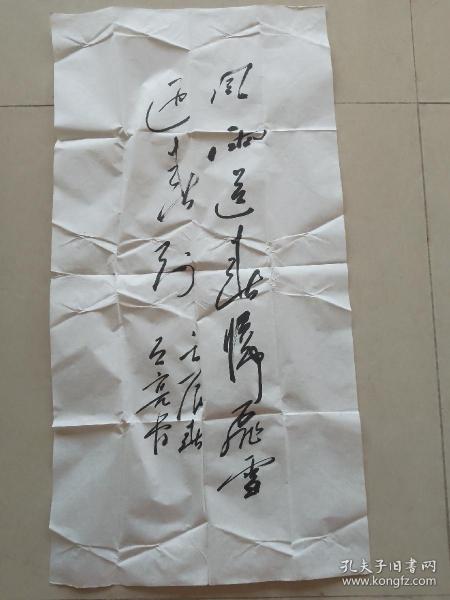 风雨送春归飞雪
迎春到
壬辰秋
亮书
孔夫子旧书网
www.kongfz.com